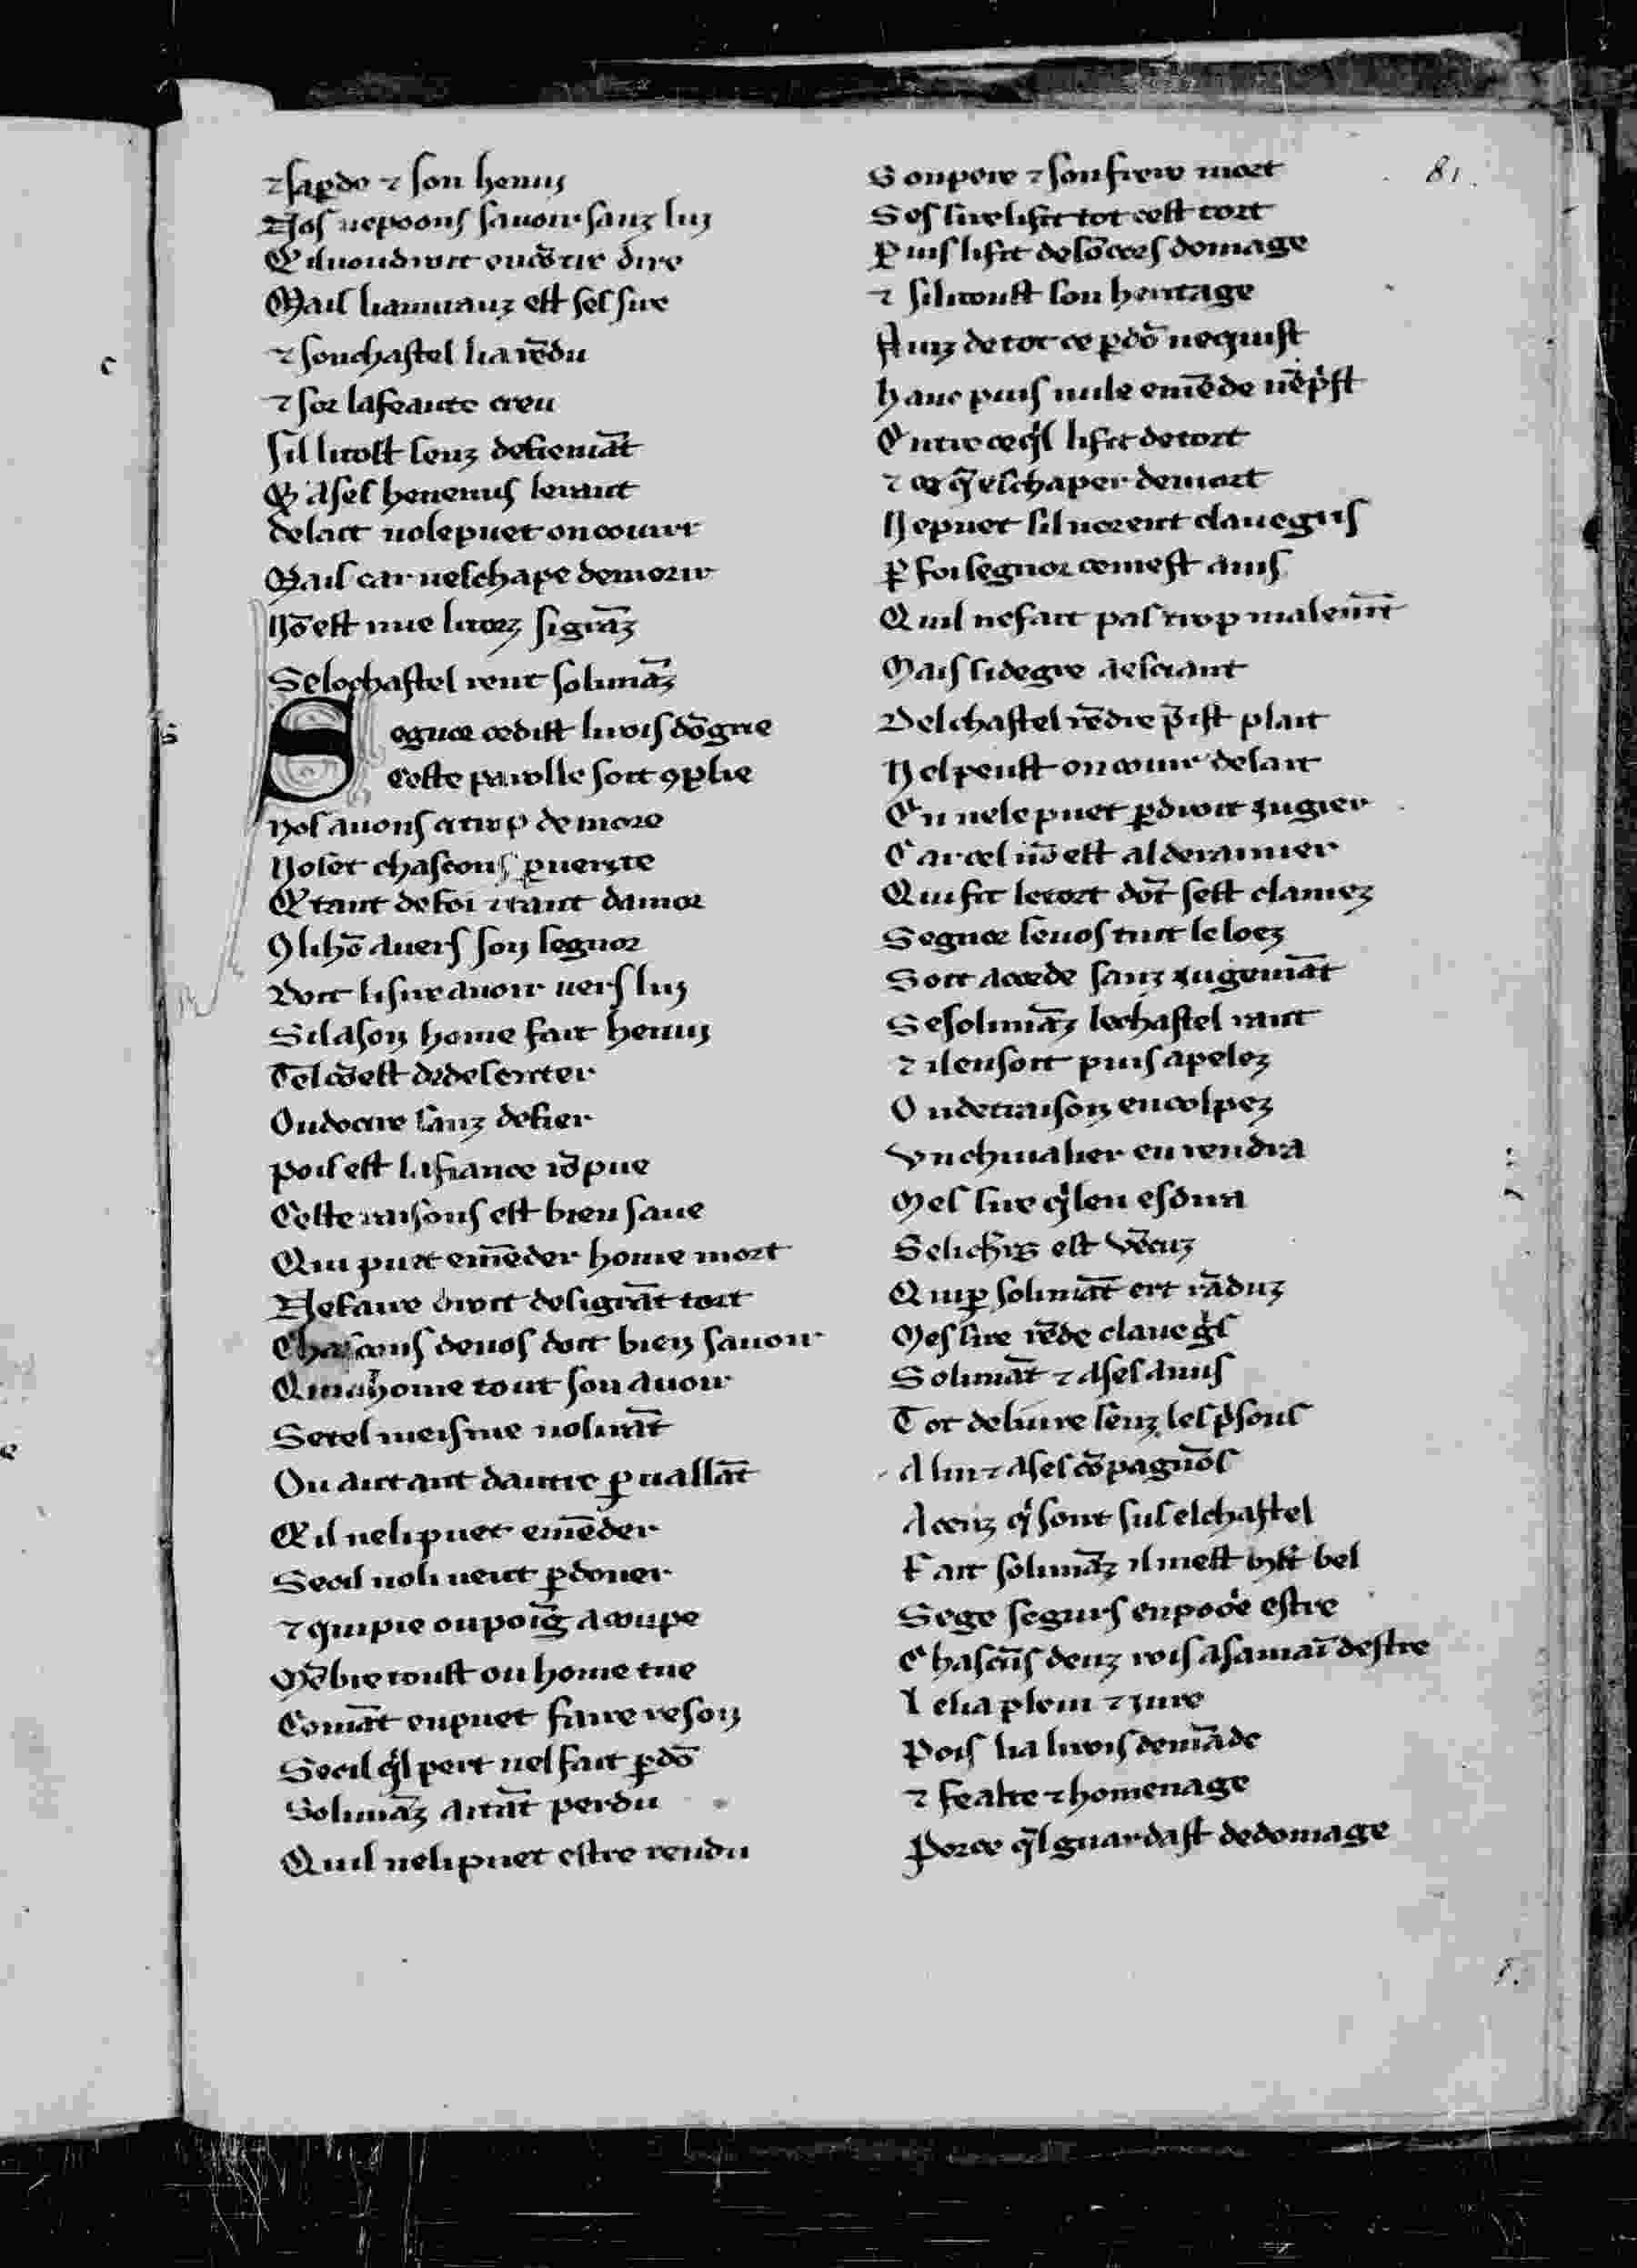 ⁊ saꝑde ⁊ son henuj
Nos nepoons sauoir sanz luj
Cil uoudroit encõtre dire
Mais liamiranz est ses sire
⁊ sonchastel lia rẽdu
⁊ sor lafeaute creu
sil litost senz defiemãt
Q̃ asel henemis lerant
delait nolepuet oncourir
Mais car neschape demorir
Nõest mie litorz sigrãz
Selochastel rent solimãz
Segnor cedist lirois dõgrie
Ceste parolle soit ꝯplie
Nos auons ci trop demore
Noset chascons ꝑuerite
Q̃ tant defoi ⁊tant damor
ꝯ lihõ auers son segnor
Doit lisire auoir uers luj
Silason home fait henuj
Tel cõ est dedeseriter
Oudocire sanz defier
pois est lafiance rõpue
Ceste raisons est bien saue
Qui puet emẽder home mort
Nefaire droit desigrãt tort
Chascons deuos doit bien sauoir
Quiahome tout son auoir
Setel meisme nolirãt
Ou autant dautre ꝑuallãt
Q̃ il nelipuet emẽder
Secil noli ueut ꝑdoner
⁊ quipie oupoĩg acoupe
Mẽbre toust ou home tue
Comãt enpuet faire reson
Secil q̃l pert nel fait ꝑdõ
Solimãz aitãt perdu
Quil nelipuet estre rendu
Sonpere ⁊ sonfrere mort
Ses sirelifit tot cest tort
Puis lifit desõcors domage
⁊ silitoust son heritage
Ainz detot ce ꝑdõ nequist
Hanc puis nule emẽde nẽpͥst
Entre ceqͥl lifit detort
⁊ ce q̃ eschaper demort
Nepuet silnorent clauegris
ꝑ foi segnor cemest auis
Quil nefait pas trop malemãt
Mais sidegre aesciant
Delchastel rẽdre p̃ist plait
Nelpeust oncourir delait
En nele puet ꝑdroit jugier
Carcel nõ est alderainier
Quifit letort dõt sest clamez
Segnor seuos tuit leloez
Soit acorde sanz jugemãt
Sesolimãz lechastel rant
⁊ ilensoit puis apelez
Ondetraison encolpez
Vnchiualier enrendra
Mes sire qͥlen esdira
Selicheͬrs est vẽcuz
Quiꝑ solimãt ert rãduz
Mes sire rẽde clauegͥs
Solimãt ⁊ asesamis
Tot deliure senz les pͥsons
Alui ⁊ asescõpagnõs
Aceuz qͥ sont sus elchastel
Fait solimãz ilmest mlt̃ bel
Sege segurs enpooͥe estre
Chascũs deuz rois asamaĩ destre
Lelia pleui ⁊ jure
Pois lia lirois demãde
⁊ fealte ⁊ homenage
Porce qͥlguardast dedomage
81.